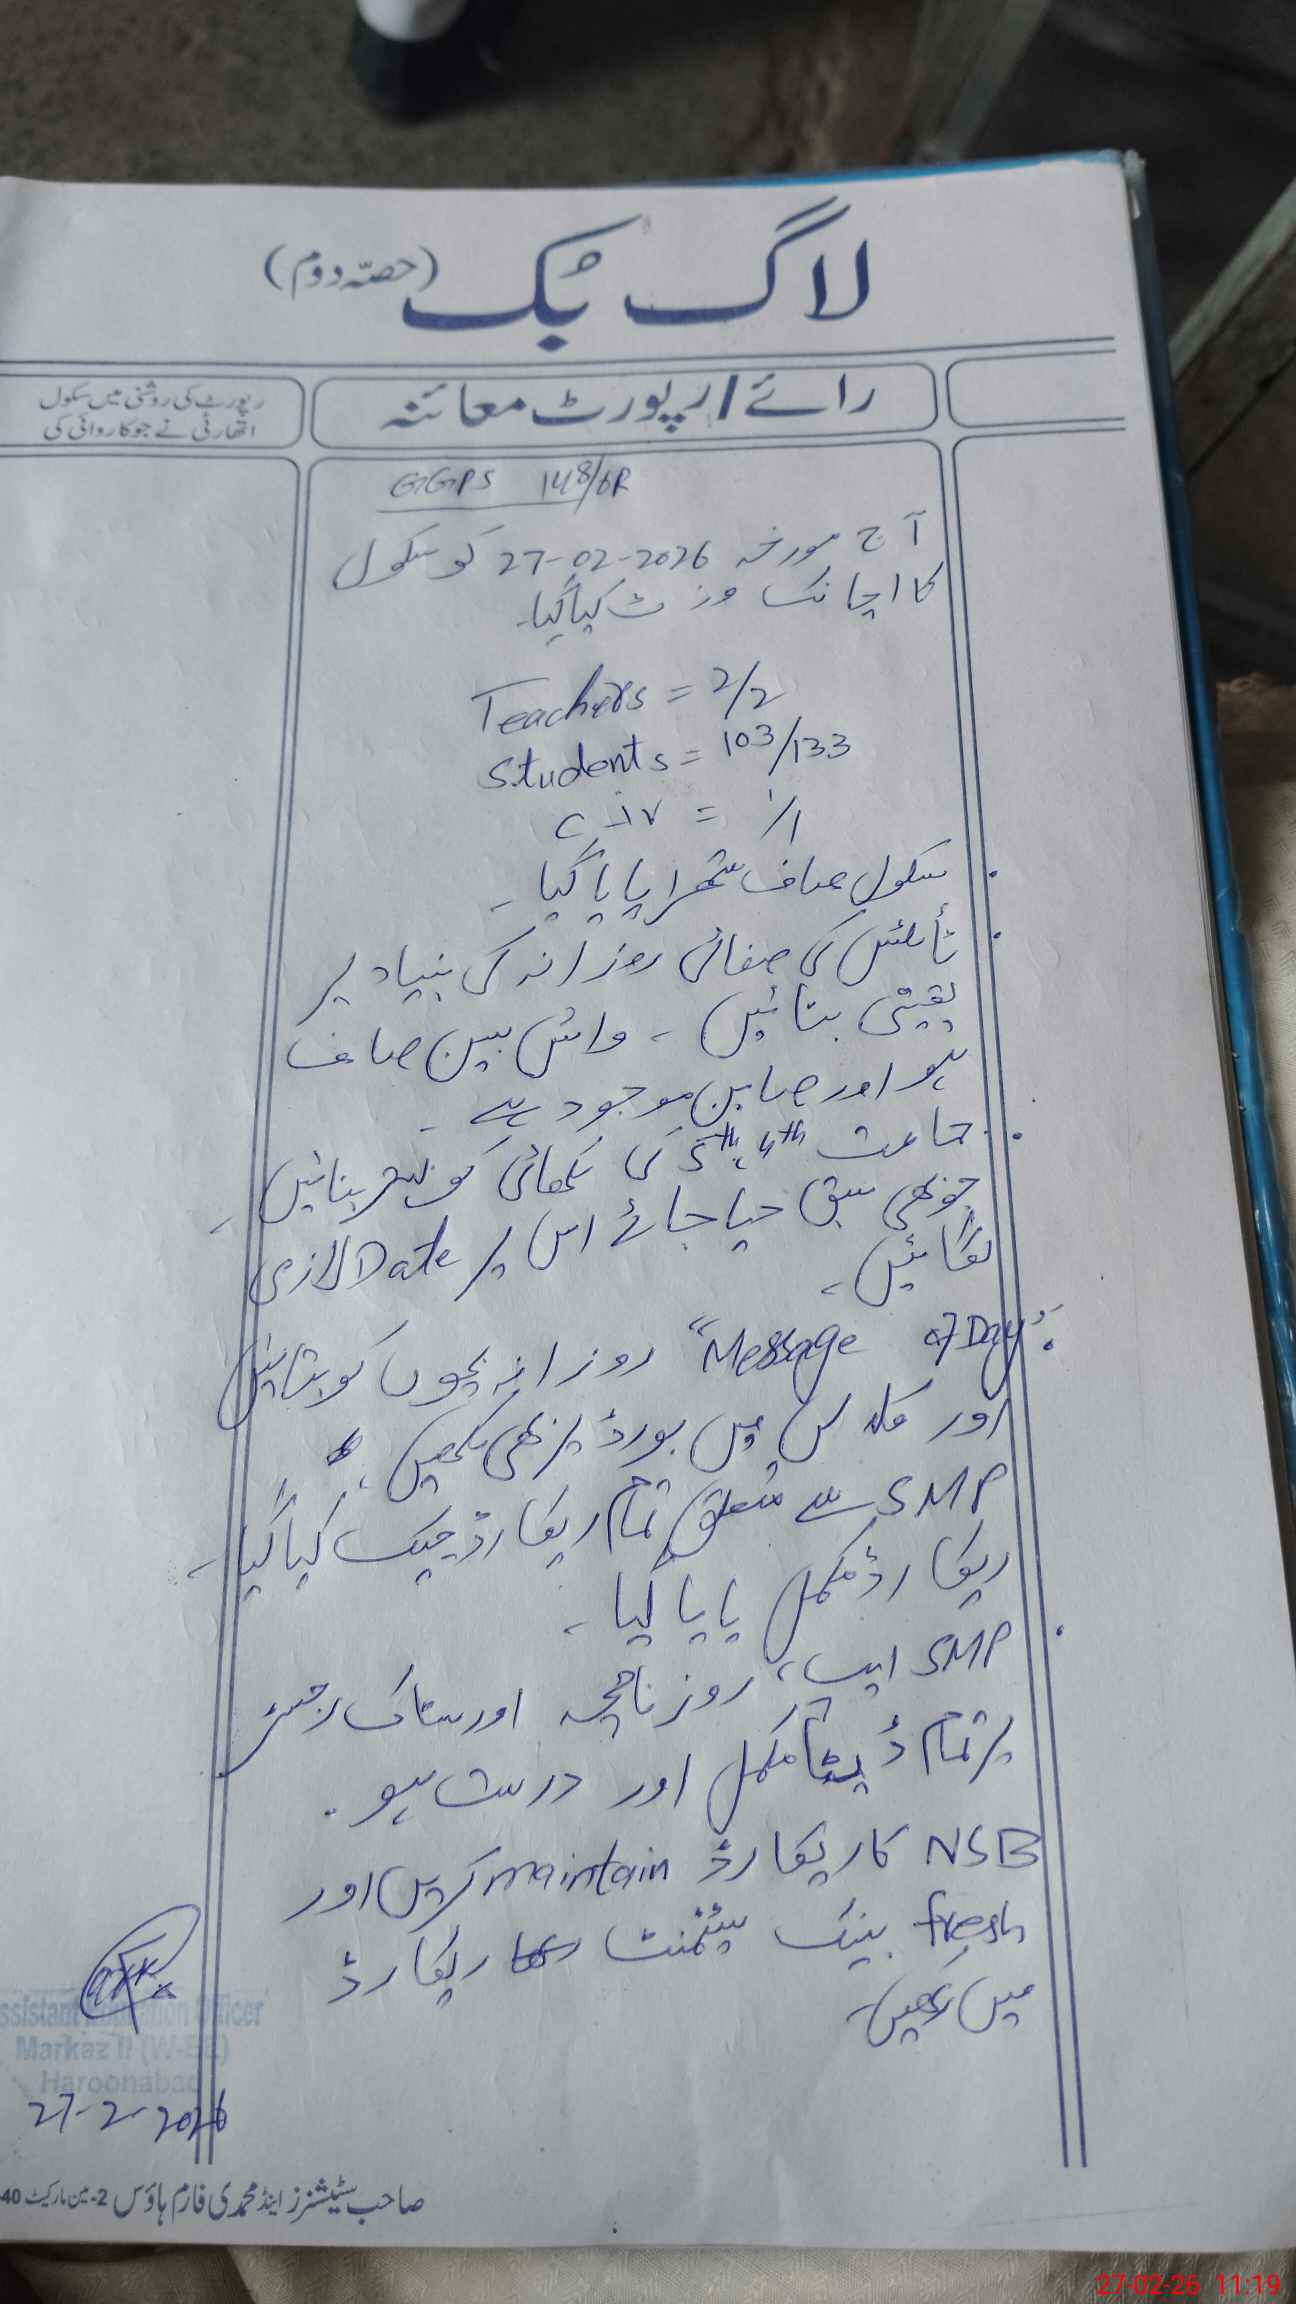 لاگ بُک (حصّہ دوم)
رائے / رپورٹ معائنہ
رپورٹ کی روشنی میں سکول
اتھارٹی نے جو کاروائی کی
GGPS 148/6R
آج مورخہ 27-02-2026 کو سکول
کا اچانک وزٹ کیا گیا۔
Teachers = 2/2
Students = 103/133
C-IV = 1/1
سکول صاف ستھرا پایا گیا۔
ٹائلٹس کی صفائی روزانہ کی بنیاد پر
یقینی بنائیں۔ واش بیسن صاف
ہو اور صابن موجود ہے۔
جماعت 4th، 5th کی لکھائی کو بہتر بنائیں۔
جو بھی سبق دیا جائے اس پر Date لازمی
لگائیں۔
"Message of Day" روزانہ بچوں کو بتائیں
اور کلاس میں بورڈ پر بھی لکھیں۔
SMP سے متعلق تمام ریکارڈ چیک کیا گیا۔
ریکارڈ مکمل پایا گیا۔
SMP ایپ، روزنامچہ اور سٹاک رجسٹر
پر تمام ڈیٹا مکمل اور درست ہو۔
NSB کا ریکارڈ maintain کریں اور
fresh بینک سٹیٹمنٹ ریکارڈ
میں رکھیں۔
ssistant Education Officer
Markaz II (W-EE)
Haroonabad
27-2-2026
صاحب سٹیشنرز اینڈ محمدی فارم ہاؤس 2-مین مارکیٹ 40
27-02-26 11:19